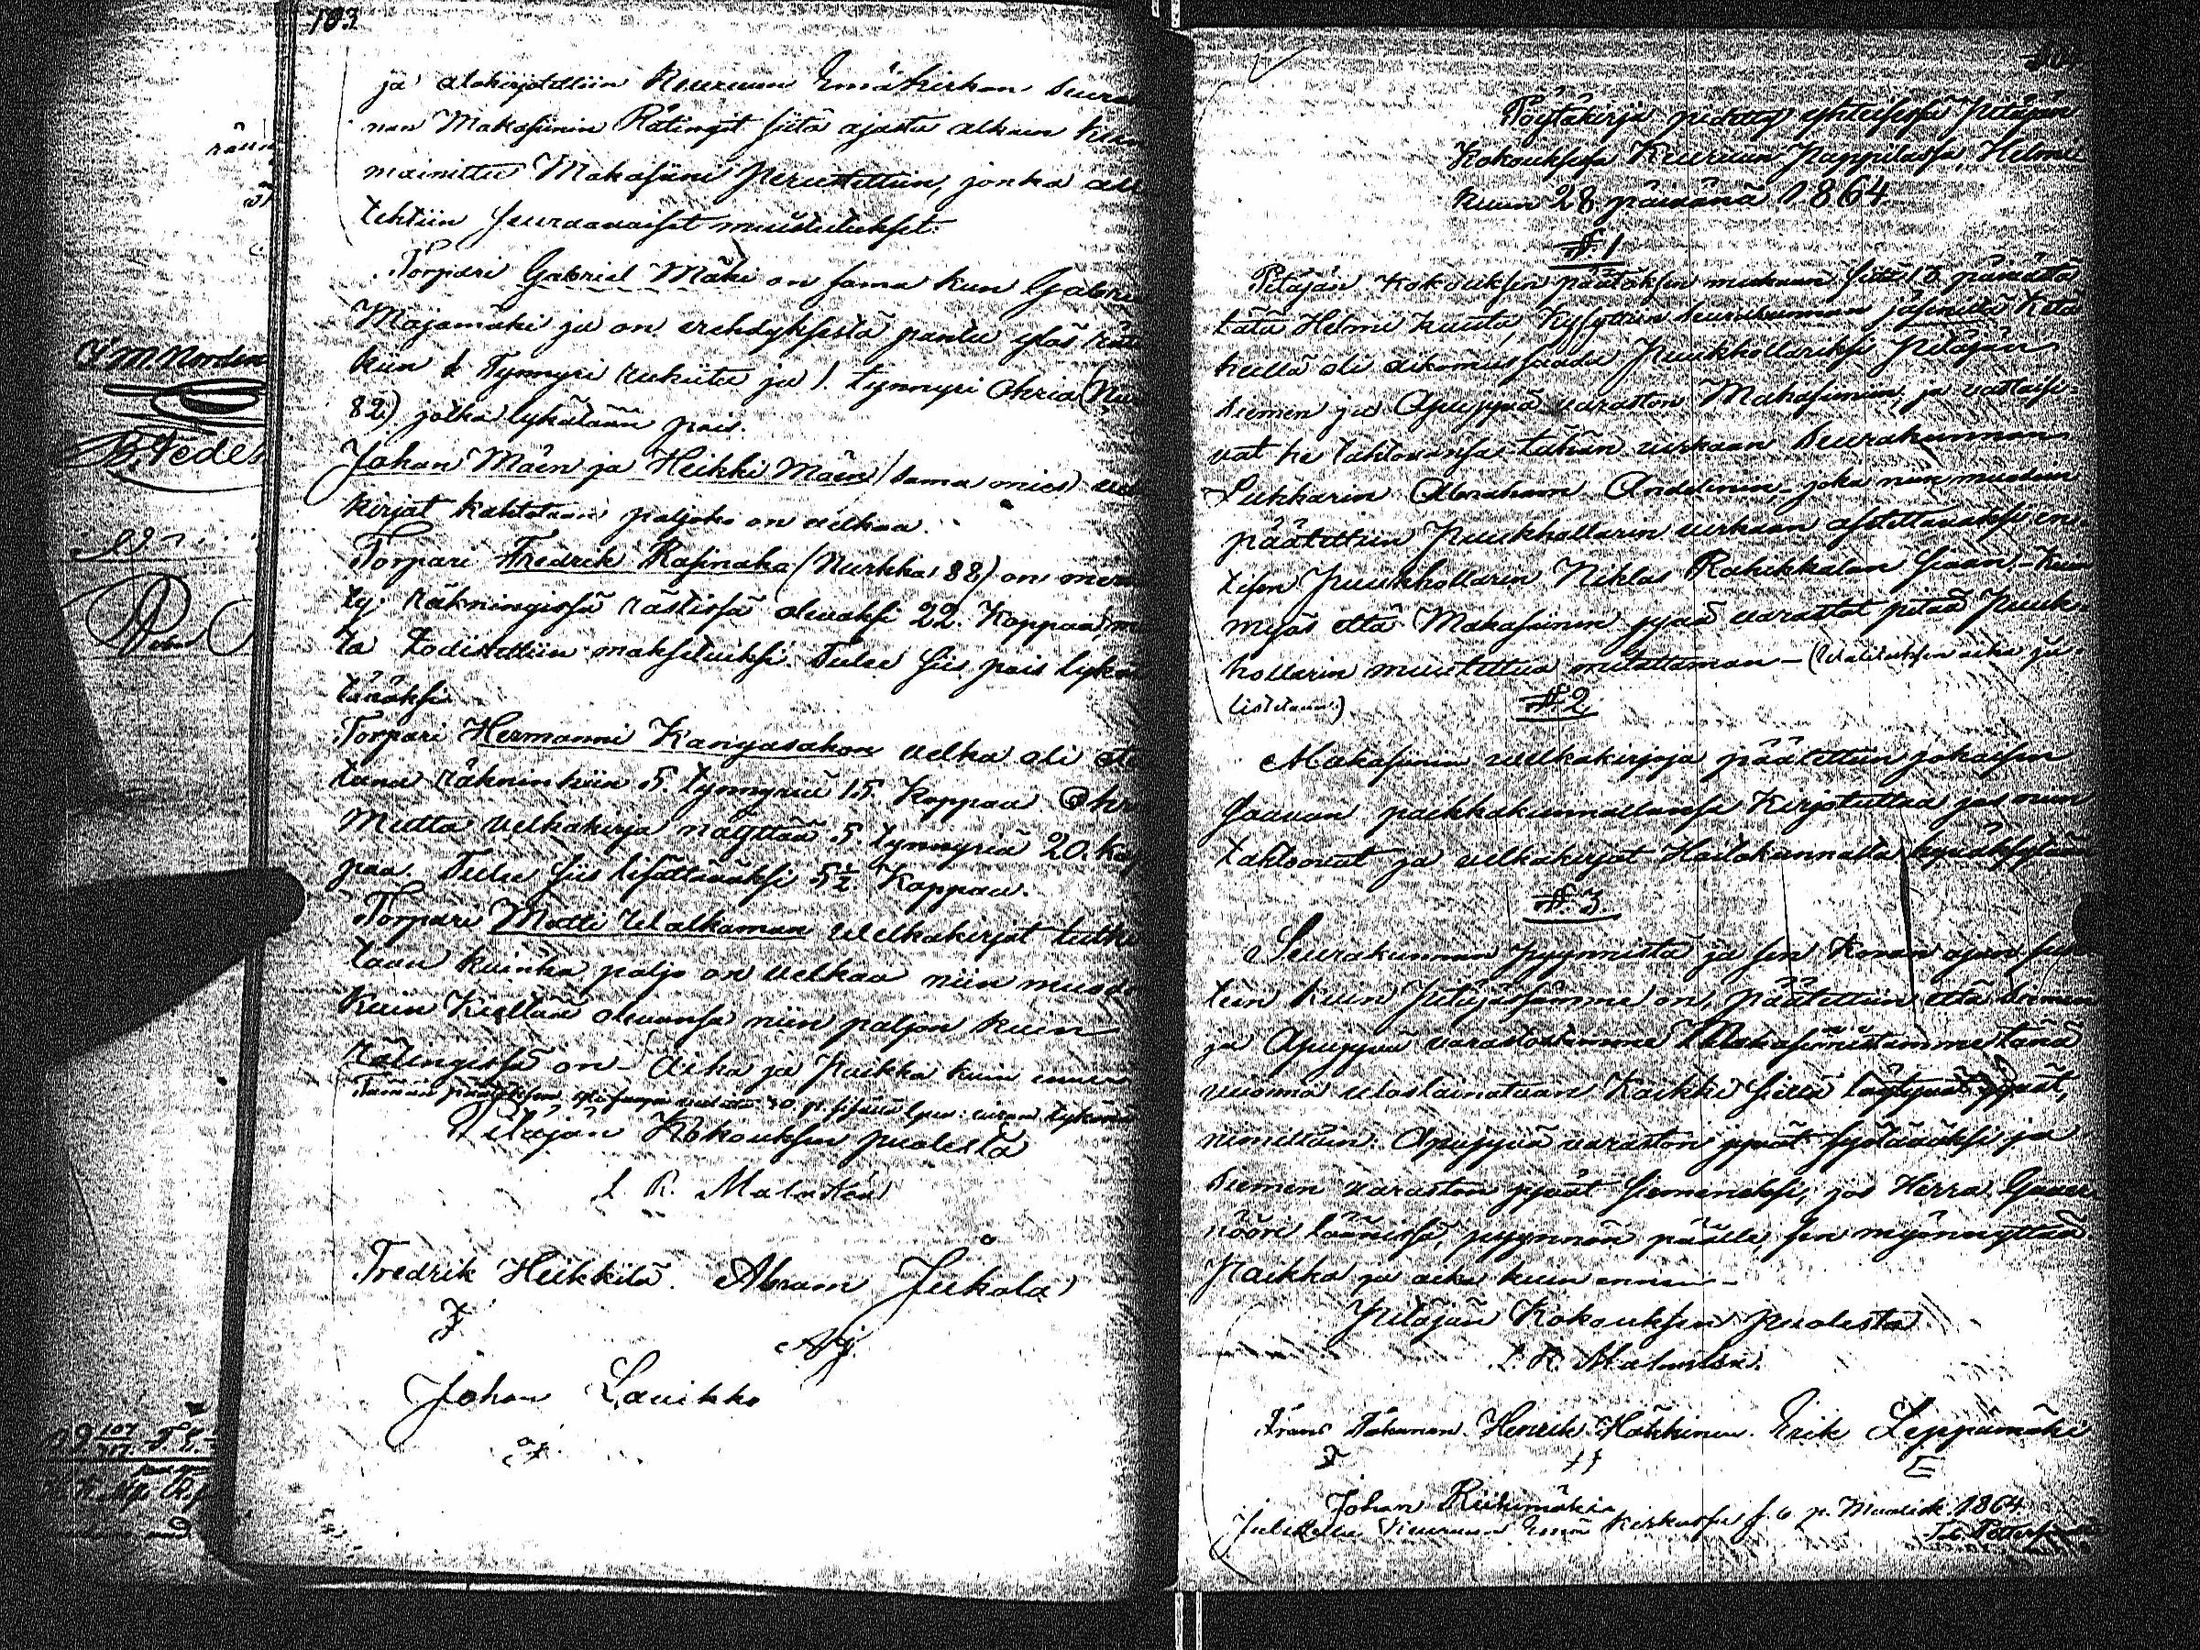 103
ja alakirjotettiin Keuruun Emäkirkon Seurak
nan Makasiinin Rätingit siitä ajasta alkain kun
mainittu Makasiini perustettiin, jonka al
tehtiin seuraavaiset muistutukset.
Torpari Gabriel Mäki on sama kun Gabrie
Majamäki ja on erehdyksestä pantu ylös rät
kiin 1 Tynnyri rukiita ja 1. tynnyri Ohria (Nur
82) jotka lykätään pois.
Johan Mäen ja Heikki Mäen (sama mies) vel
kirjat kahtotaan paljoko on velkaa.
Torpari Fredrik Rasinaha (Nurkka 88) on mer
ty räkningissä rästissä olevaksi 22. Kappaa, m
ta todistettiin maksetuiksi. Tulee siis pois lykä
tääksi
Torpari Hermanni Kangasahon velka oli ote
tana räkninkiin 5. tynnyriä 15. Kappaa Ohr
Mutta velkakirja näyttää 5. tynnyriä 20. Kap
paa. Tulee siis lisättäväksi 5½ Kappaa.
Torpari Matti Walkaman Welkakirjat tutki
taan kuinka paljo on velkaa niin muodo
kuin kieltää olevansa niin paljon kuin
rätingissä on – Aika ja Paikka kuin ennen
Pitäjän Kokouksen puolesta
L. R. Malmstén
Fredrik Heikkilä. Abram Jukola
Johan Lauikko
Pöytäkirja pidetty yhteisessä Pitäjän
Kokouksessa Keuruun Pappilassa, Helmi
kuun 28 päivänä 1864.
№ 1
Pitäjän Kokouksen päätöksen mukaan siitä 15 päivästä
tätä Helmi kuuta, kysyttiin Seurakunnan jäseniltä Ketä
heillä oli aikomus saada Puukhollariksi Pitäjän
Siemen ja Apujyvä varaston Makasiiniin, ja vastasi-
vat he tahtovansa tähän virkaan Seurakunnan
Lukkarin Abraham Andelinin – joka niin muodoin
päätettiin Puukhollarin virkaan asetettavaksi en-
tisen Puukhollarin Niklas Rahikkalan siaan – Kun
myös että Makasiinin jyvä varastot pitää Puuk-
hollarin muutettua mitattaman – (Mitatuksen aika ju-
listetaan.)
№ 2
Makasiinin velkakirjoja päätettiin jokaisen
saavan paikkakunnallansa Kirjotuttaa jos niin
tahtoovat ja velkakirjat Hoitokunnalta hyväksytään
№ 3
Seurakunnan pyynnöstä ja sen Kovan ajan suh
teen kuin Pitäjässämme on, päätettiin että Siemen
ja Apujyvä varastostamme Makasiinistamme tänä
vuonna uloslainataan Kaikki siellä löytyvät jyvät,
nimittäin: Apujyvä varaston jyvät syötäväksi ja
Siemen varaston jyvät siemeneksi, jos Herra Guver-
nööri läänissä, pyynnön päälle, sen myönnyttää.
Paikka ja aika kuin ennen –
Pitäjän Kokouksen puolesta
L. R. Malmstén.
Frans Henrik Häkkinen. Erik Leppämäki
Johan Riihimäki
Julistettu Keuruun Emä Kirkossa s. 6 p. Maalisk. 1864